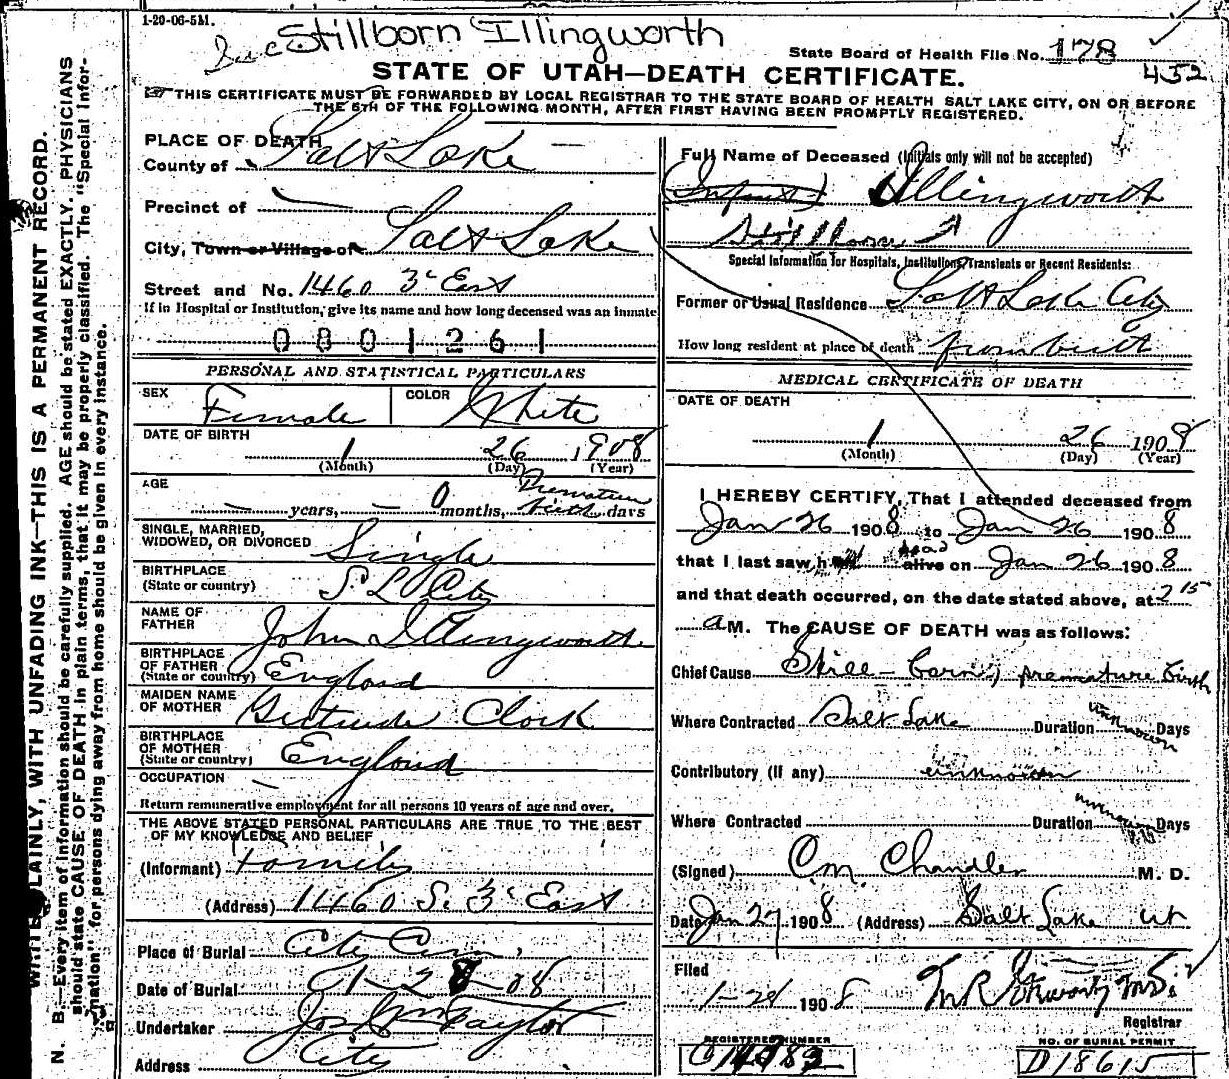 1-20-06-5M.
Stillborn Illingworth
State Board of Health File No. 178
452
STATE OF UTAH—DEATH CERTIFICATE.
THIS CERTIFICATE MUST BE FORWARDED BY LOCAL REGISTRAR TO THE STATE BOARD OF HEALTH SALT LAKE CITY, ON OR BEFORE
THE 5TH OF THE FOLLOWING MONTH, AFTER FIRST HAVING BEEN PROMPTLY REGISTERED.
PLACE OF DEATH
County of Salt Lake
Precinct of
City, Town or Village of Salt Lake
Street and No. 1460 3d East
If in Hospital or Institution, give its name and how long deceased was an inmate
0801261
PERSONAL AND STATISTICAL PARTICULARS
SEX Female COLOR White
DATE OF BIRTH
1 26, 1908
(Month) (Day) (Year)
AGE
— years, — 0 months, Premature birth days
SINGLE, MARRIED,
WIDOWED, OR DIVORCED Single
BIRTHPLACE
(State or country) S. L. City
NAME OF
FATHER John Illingworth
BIRTHPLACE
OF FATHER
(State or country) England
MAIDEN NAME
OF MOTHER Gertrude Clark
BIRTHPLACE
OF MOTHER
(State or country) England
OCCUPATION —
Return remunerative employment for all persons 10 years of age and over.
THE ABOVE STATED PERSONAL PARTICULARS ARE TRUE TO THE BEST
OF MY KNOWLEDGE AND BELIEF
(Informant) Family
(Address) 1460 S. 3d East
Place of Burial City Cem.
Date of Burial 1-28-08
Undertaker Jos Wm Taylor
Address City
Full Name of Deceased (Initials only will not be accepted)
(Infant) Illingworth
Stillborn
Special Information for Hospitals, Institutions, Transients or Recent Residents:
Former or Usual Residence Salt Lake City
How long resident at place of death from birth
MEDICAL CERTIFICATE OF DEATH
DATE OF DEATH
1 26 1908
(Month) (Day) (Year)
I HEREBY CERTIFY, That I attended deceased from
Jan 26 1908 to Jan 26 1908
that I last saw h dead alive on Jan 26 1908
and that death occurred, on the date stated above, at 2 15
a M. The CAUSE OF DEATH was as follows:
Chief Cause Still-born, premature birth
Where Contracted Salt Lake Duration unknown Days
Contributory (if any) unknown
Where Contracted Duration unknown Days
(Signed) C.M. Chandler M. D.
Date Jan 27 1908 (Address) Salt Lake Ut
Filed
1-28 1908
Registrar
REGISTERED NUMBER
NO. OF BURIAL PERMIT
D18615
WRITE PLAINLY, WITH UNFADING INK—THIS IS A PERMANENT RECORD.
N. B.—Every item of information should be carefully supplied. AGE should be stated EXACTLY. PHYSICIANS
should state CAUSE OF DEATH in plain terms, that it may be properly classified. The "Special Infor-
mation" for persons dying away from home should be given in every instance.